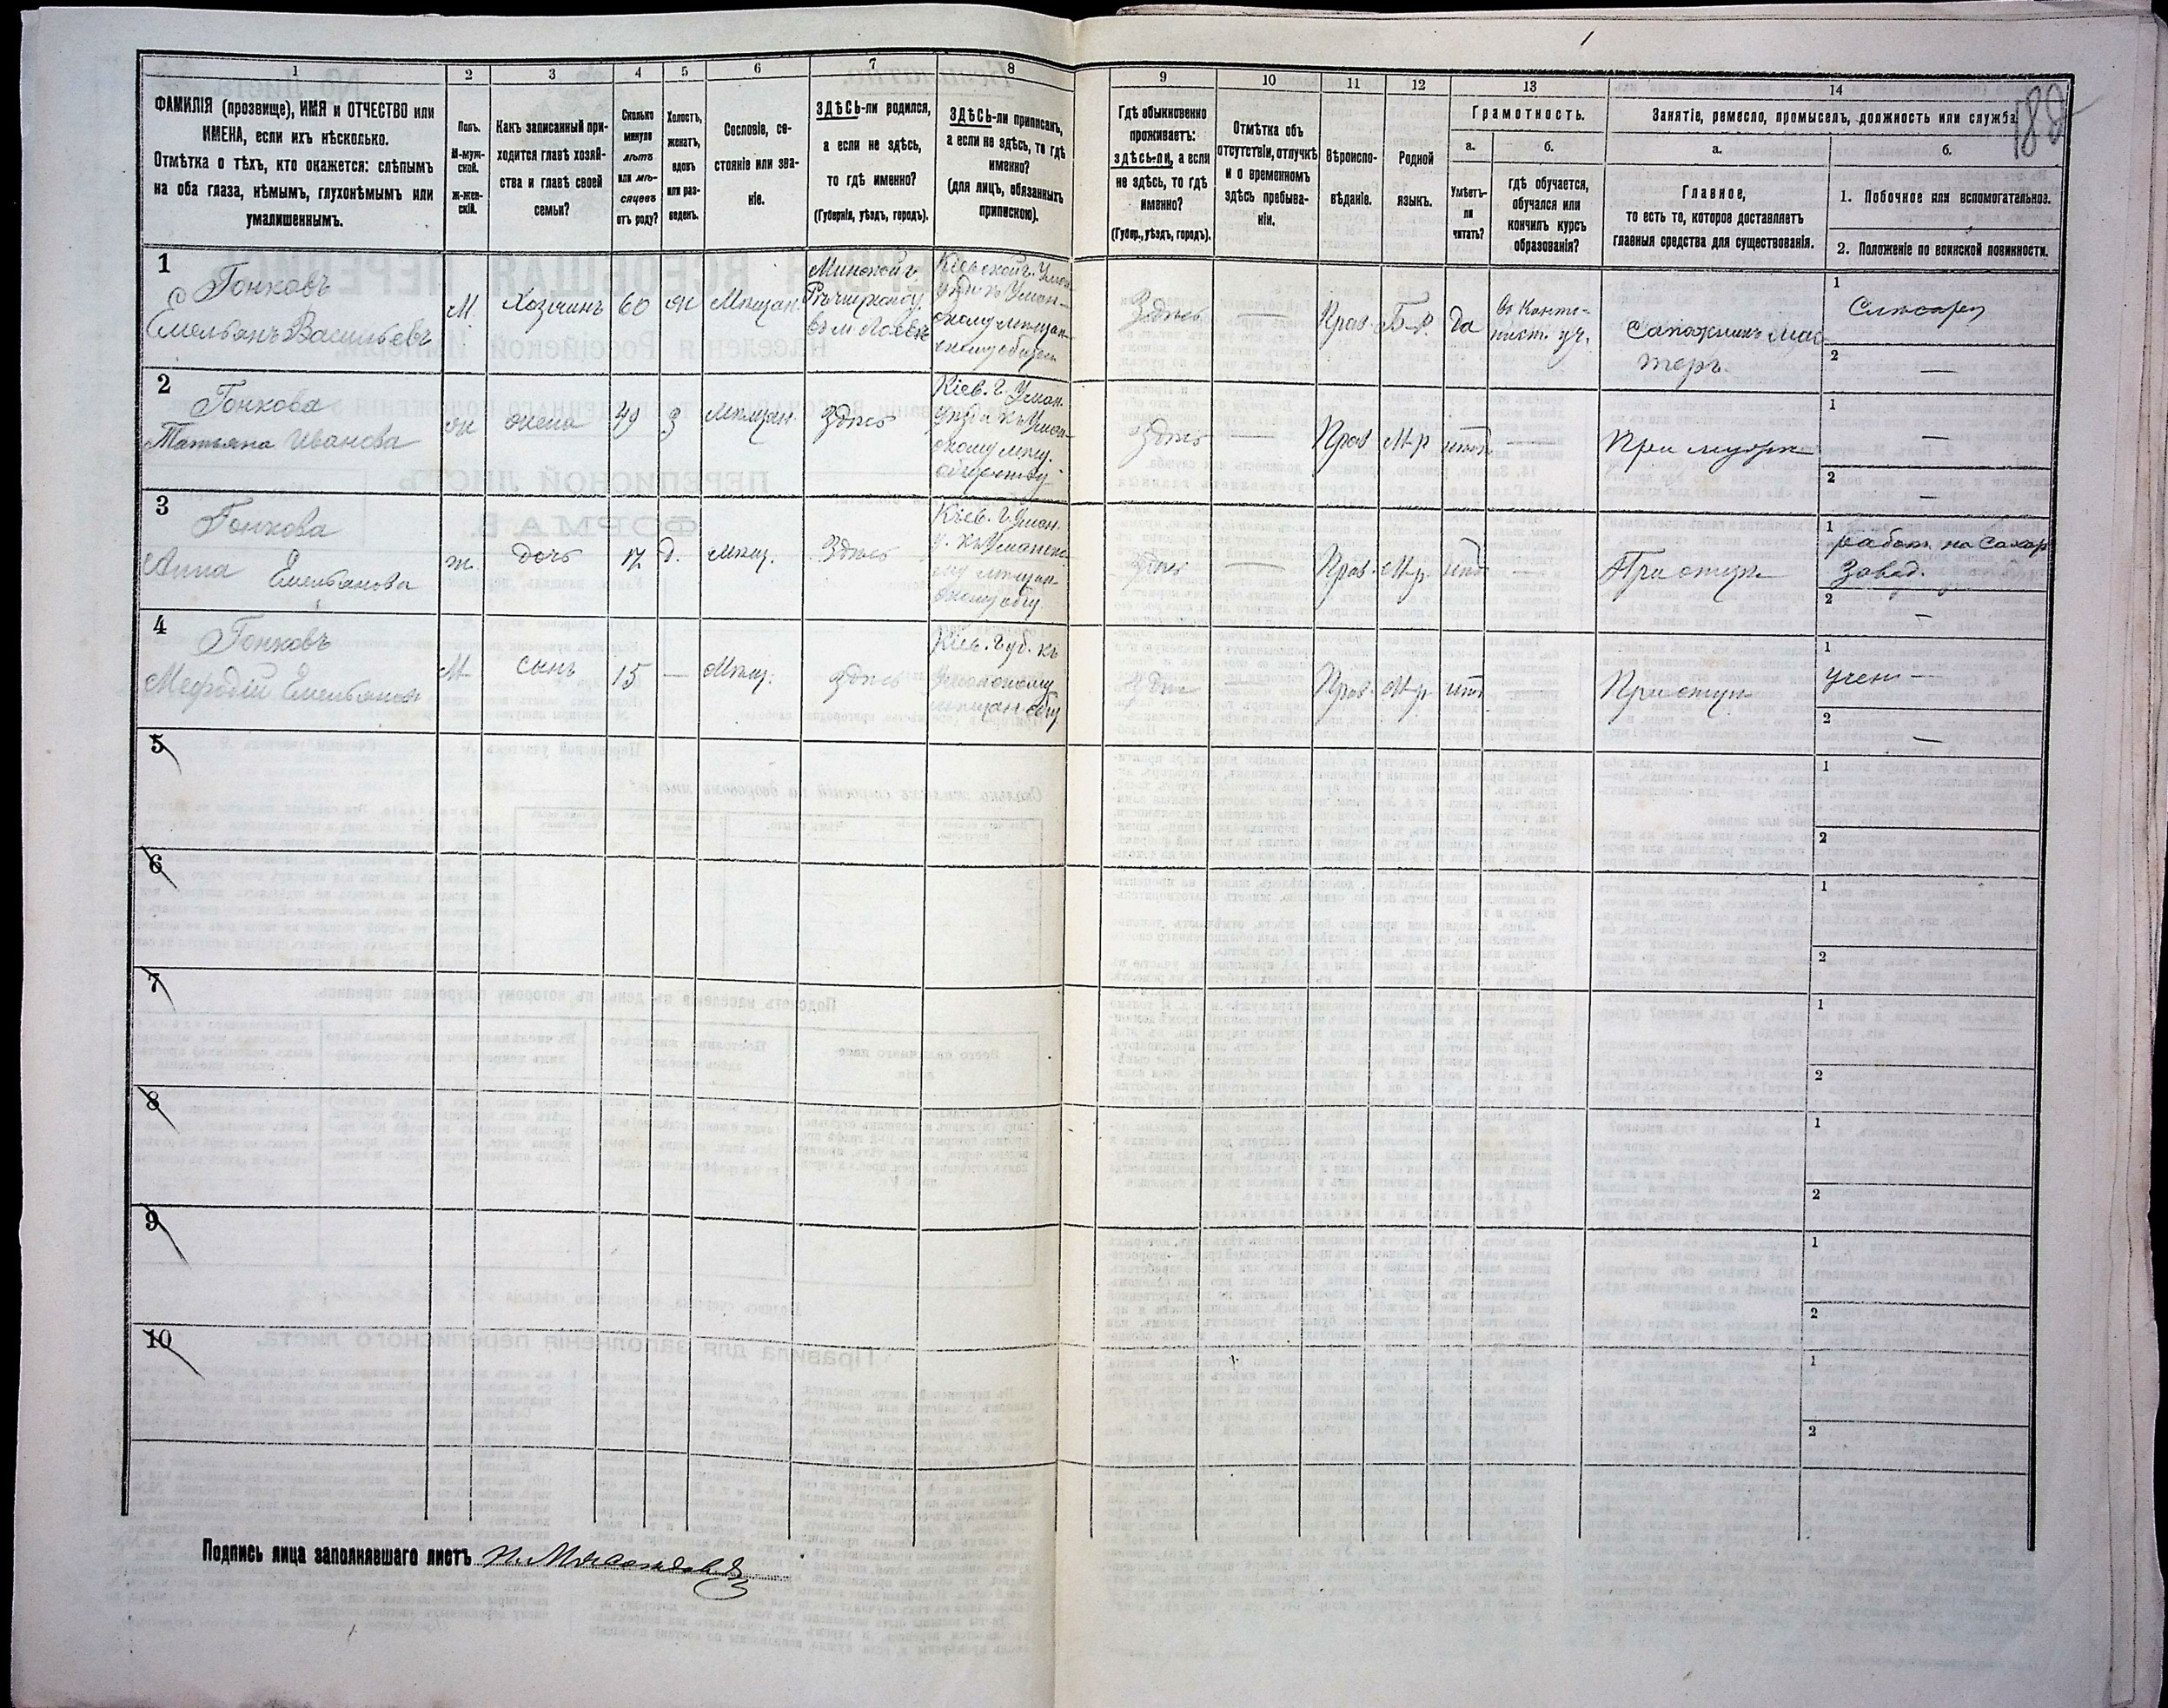 1 2 3 4 5 6 7 8 9 10 11 12 13 14
182
ФАМИЛІЯ (прозвище), ИМЯ и ОТЧЕСТВО или
ИМЕНА, если ихъ нѣсколько.
Отмѣтка о тѣхъ, кто окажется: слѣпымъ
на оба глаза, нѣмымъ, глухонѣмымъ или
умалишеннымъ.
Полъ.
М-муж-
ской.
Ж-жен-
скій.
Какъ записанный при-
ходится главѣ хозяй-
ства и главѣ своей
семьи?
Сколько
минуло
лѣтъ
или мѣ-
сяцевъ
отъ роду?
Холостъ,
женатъ,
вдовъ
или раз-
веденъ.
Сословіе, со-
стояніе или зва-
ніе.
ЗДѢСЬ-ли родился,
а если не здѣсь,
то гдѣ именно?
(Губернія, уѣздъ, городъ).
ЗДѢСЬ-ли приписанъ,
а если не здѣсь, то гдѣ
именно?
(для лицъ, обязанныхъ
припискою).
Гдѣ обыкновенно
проживаетъ:
здѣсь-ли, а если
не здѣсь, то гдѣ
именно?
(Губер., уѣздъ, городъ).
Отмѣтка объ
отсутствіи, отлучкѣ
и о временномъ
здѣсь пребыва-
ніи.
Вѣроиспо-
вѣданіе.
Родной
языкъ.
Грамотность.
а.
Умѣетъ-
ли
читать?
б.
гдѣ обучается,
обучался или
кончилъ курсъ
образованія?
Занятіе, ремесло, промыселъ, должность или служба.
а.
Главное,
то есть то, которое доставляетъ
главныя средства для существованія.
б.
1. Побочное или вспомогательное.
2. Положеніе по воинской повинности.
1
Гонковъ
Емельянъ Васильевъ
М.
Хозяинъ
60
ж
Мѣщан.
Минской г.
Рѣчицкому
въ м. Лоевѣ
Кіевской г. Уман.
Здѣсь
—
Прав.
Б-р.
Да
въ Канто-
нист. уч.
Сапожникъ мас
теръ.
1
Слесарь
2
—
2
Гонкова
Татьяна Иванова
ж
жена
49
З
Мѣщан.
Здѣсь
Кіев. г. Уман.
Здѣсь
—
Прав
М-р
нѣтъ
—
При мужѣ
1
—
2
—
3
Гонкова
Анна Емельянова
ж.
дочь
17
д.
Мѣщ.
Здѣсь
Кіев. г. Уман.
Здѣсь
—
Прав.
М-р.
нѣт
—
При отцѣ
1
работ. на Сахар
Завод.
2
—
4
Гонковъ
Мефодій Емельянов
М
сынъ
15
—
Мѣщ.
Здѣсь
Кіев. Губ. къ
Уманскому
мѣщан. общ
Здѣсь
—
Прав.
М-р
нѣт
При отцѣ
1
Учен —
2
—
5
1
2
6
1
2
7
1
2
8
1
2
9
1
2
10
1
2
Подпись лица заполнявшаго листъ